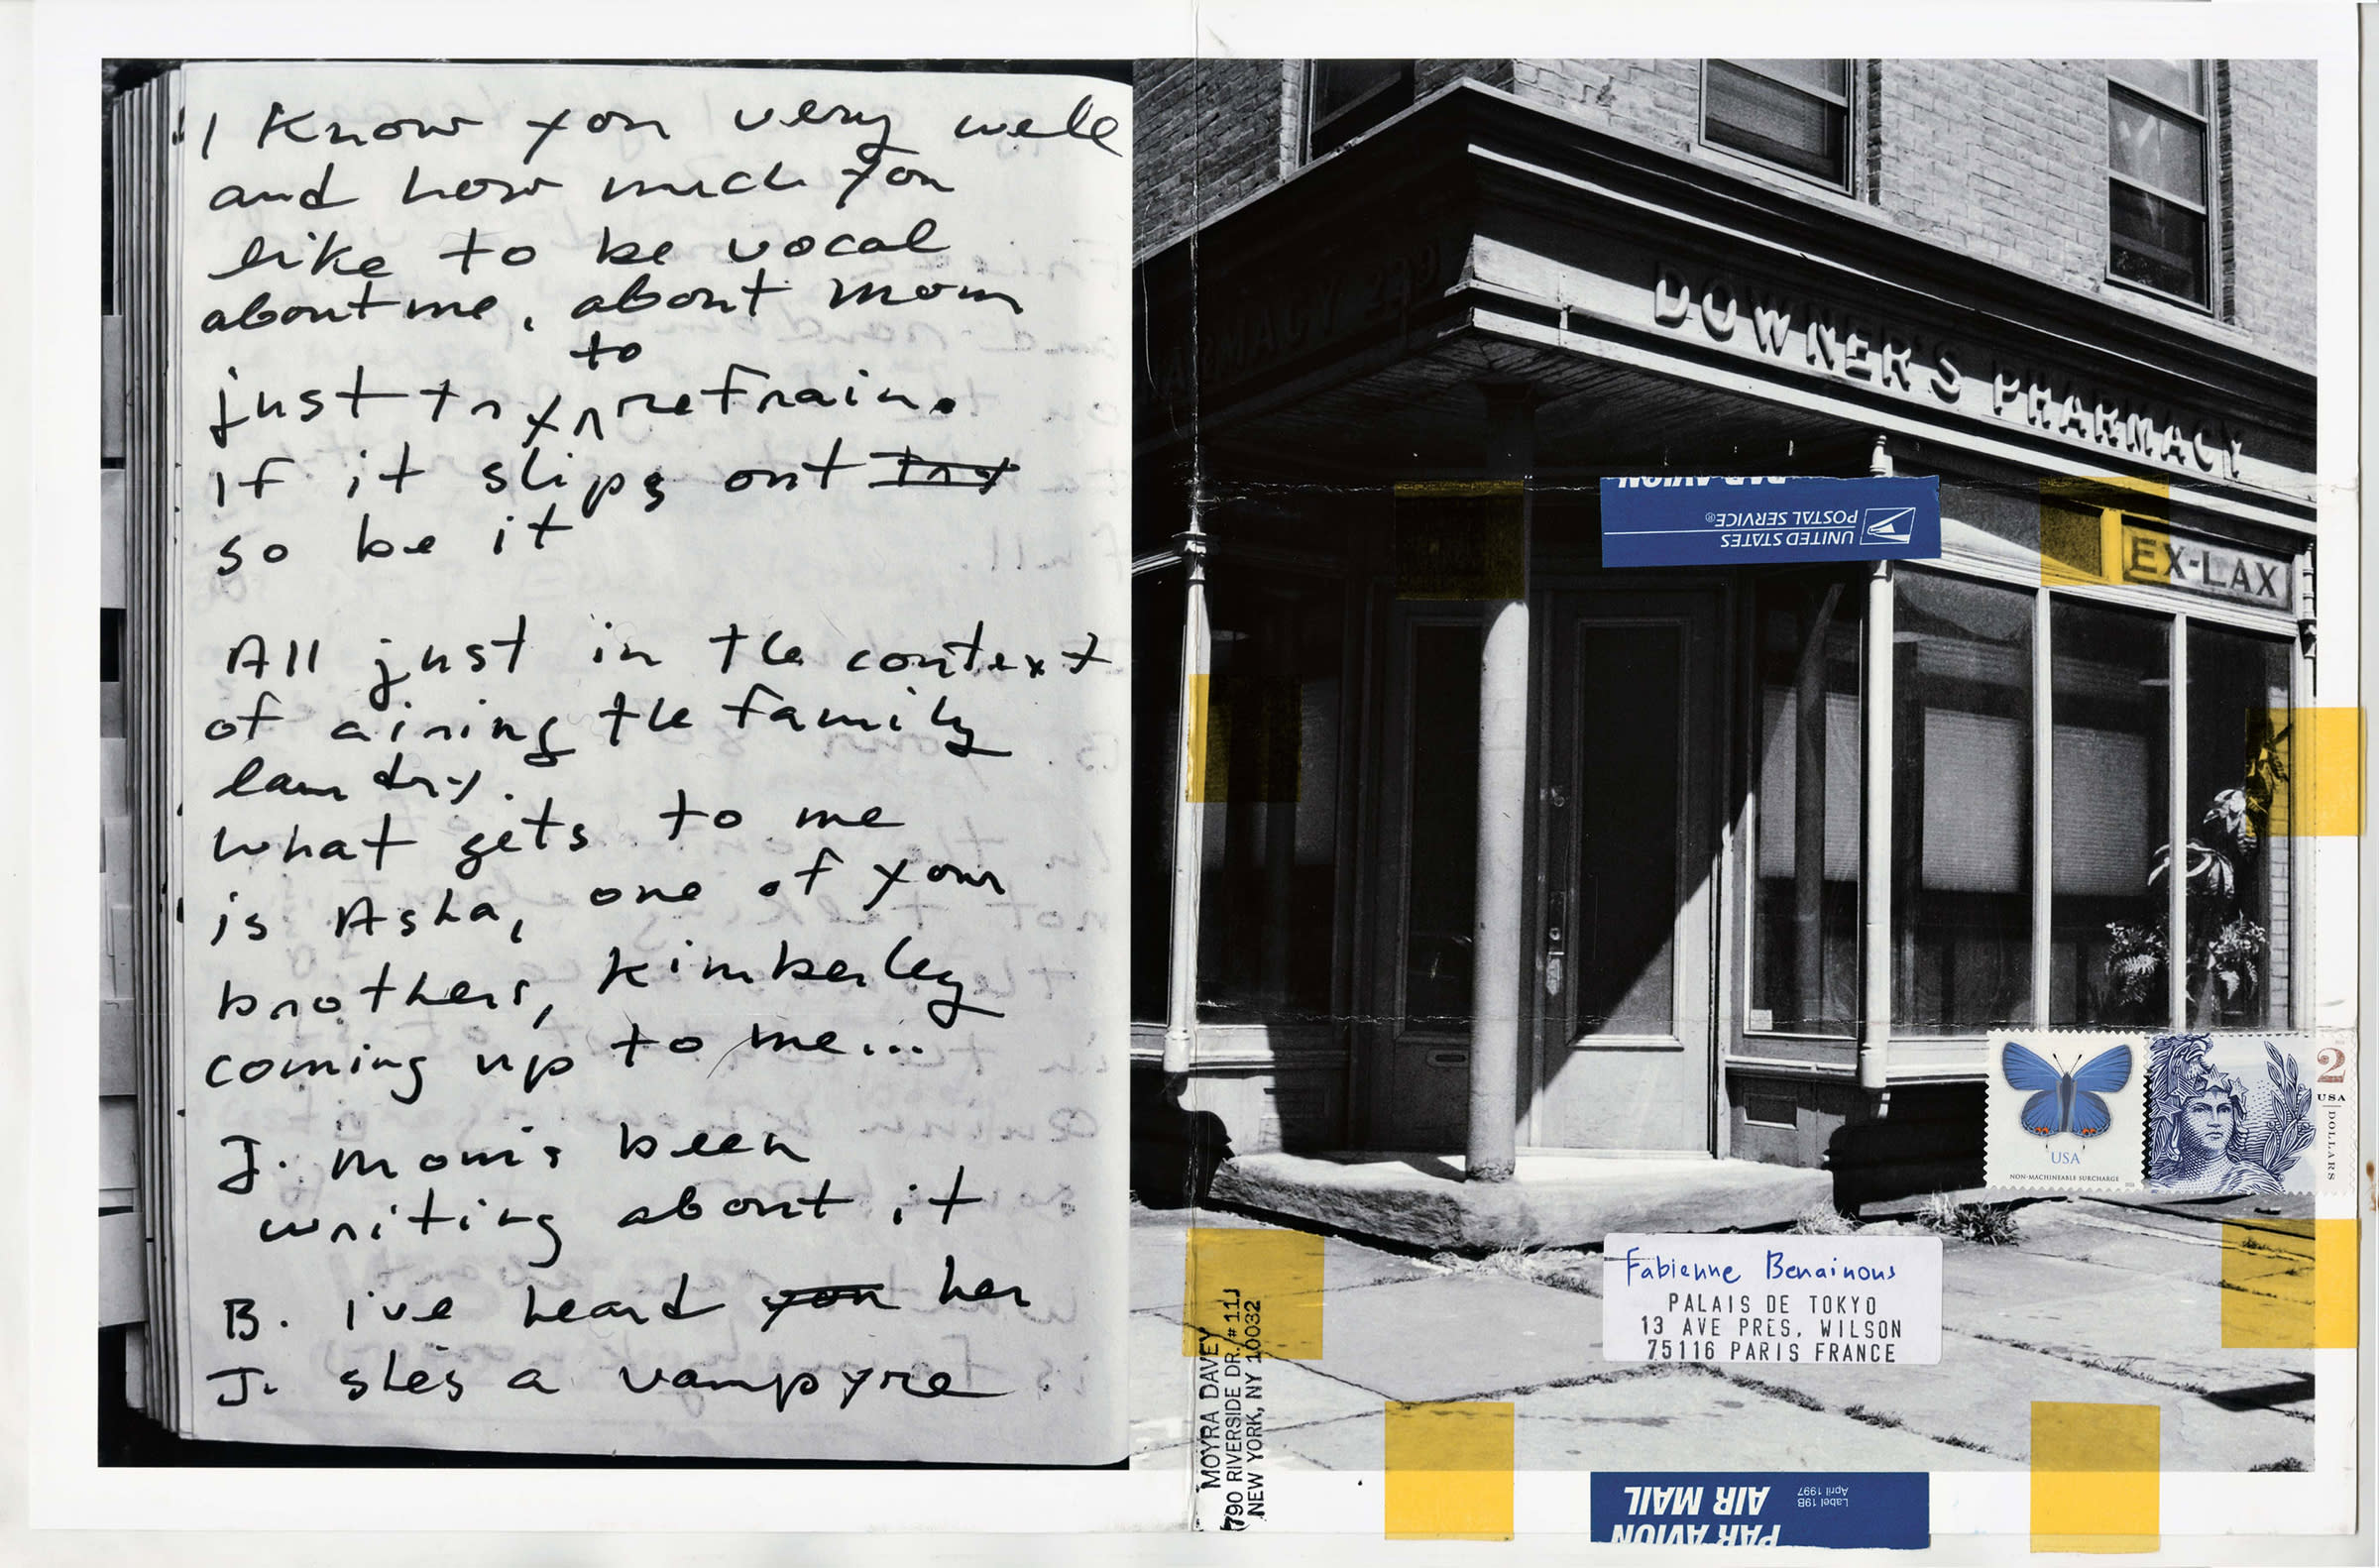 I know you very well
and how much you
like to be vocal
about me, about mom
just try to refrain.
If it slips out try
so be it
All just in the context
of airing the family
laundry.
What gets to me
is Asha, one of your
brothers, Kimberley
coming up to me...
J. mom's been
writing about it
B. i've heard you her
J. she's a vampyre
PHARMACY 229
DOWNER'S PHARMACY
EX-LAX
PAR AVION
UNITED STATES
POSTAL SERVICE®
USA
NON-MACHINEABLE SURCHARGE
2
USA
DOLLARS
Fabienne Benainous
PALAIS DE TOKYO
13 AVE PRES. WILSON
75116 PARIS FRANCE
MOYRA DAVEY
790 RIVERSIDE DR. #11J
NEW YORK, NY 10032
PAR AVION
AIR MAIL
Label 19B
April 1997